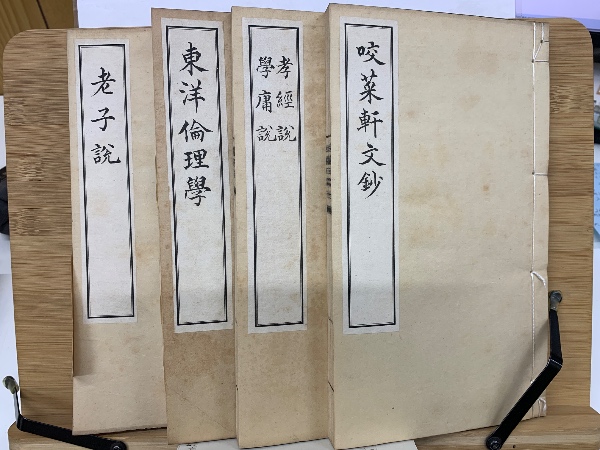 咬菜軒文鈔
孝經說
學庸說
東洋倫理學
老子說